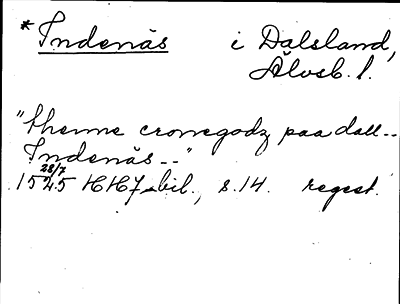 *Indenäs i Dalsland,
Älvsb. l.
"thenne cronegodz paa dall--
Indenäs--"
28/7
1525 HH7 bil., s. 14. regest.